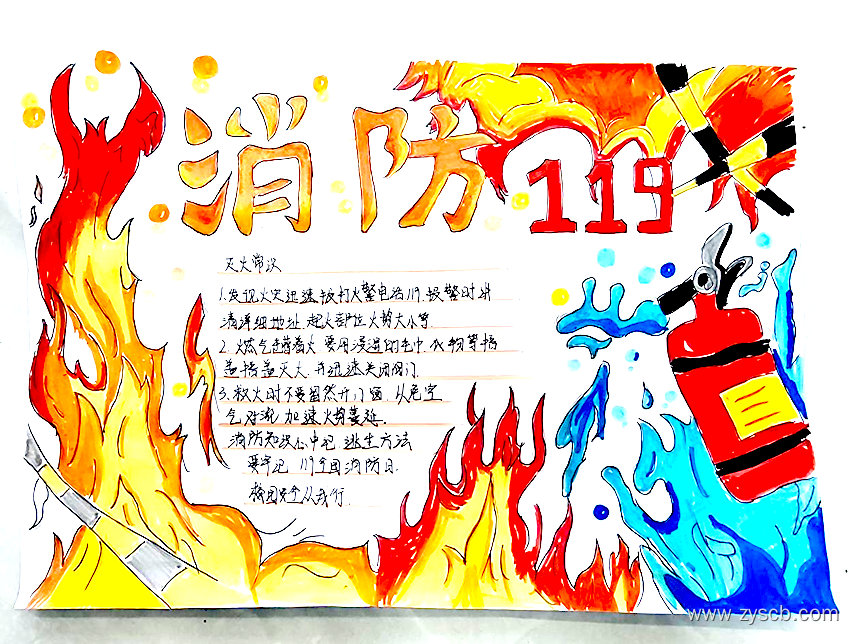 消防119
灭火常识
1.发现火灾迅速拨打火警电话119.报警时讲
清详细地址.起火部位.火势大小等.
2.燃气着火 要用浸湿的毛巾.衣物等
盖灭火.并迅速关闭阀门.
3.救火时不要贸然开门窗.从免空
气对流.加速火势蔓延.
消防知识心中记 逃生方法
要牢记 119全国消防日.
校园安全从我行.
www.zyscb.com